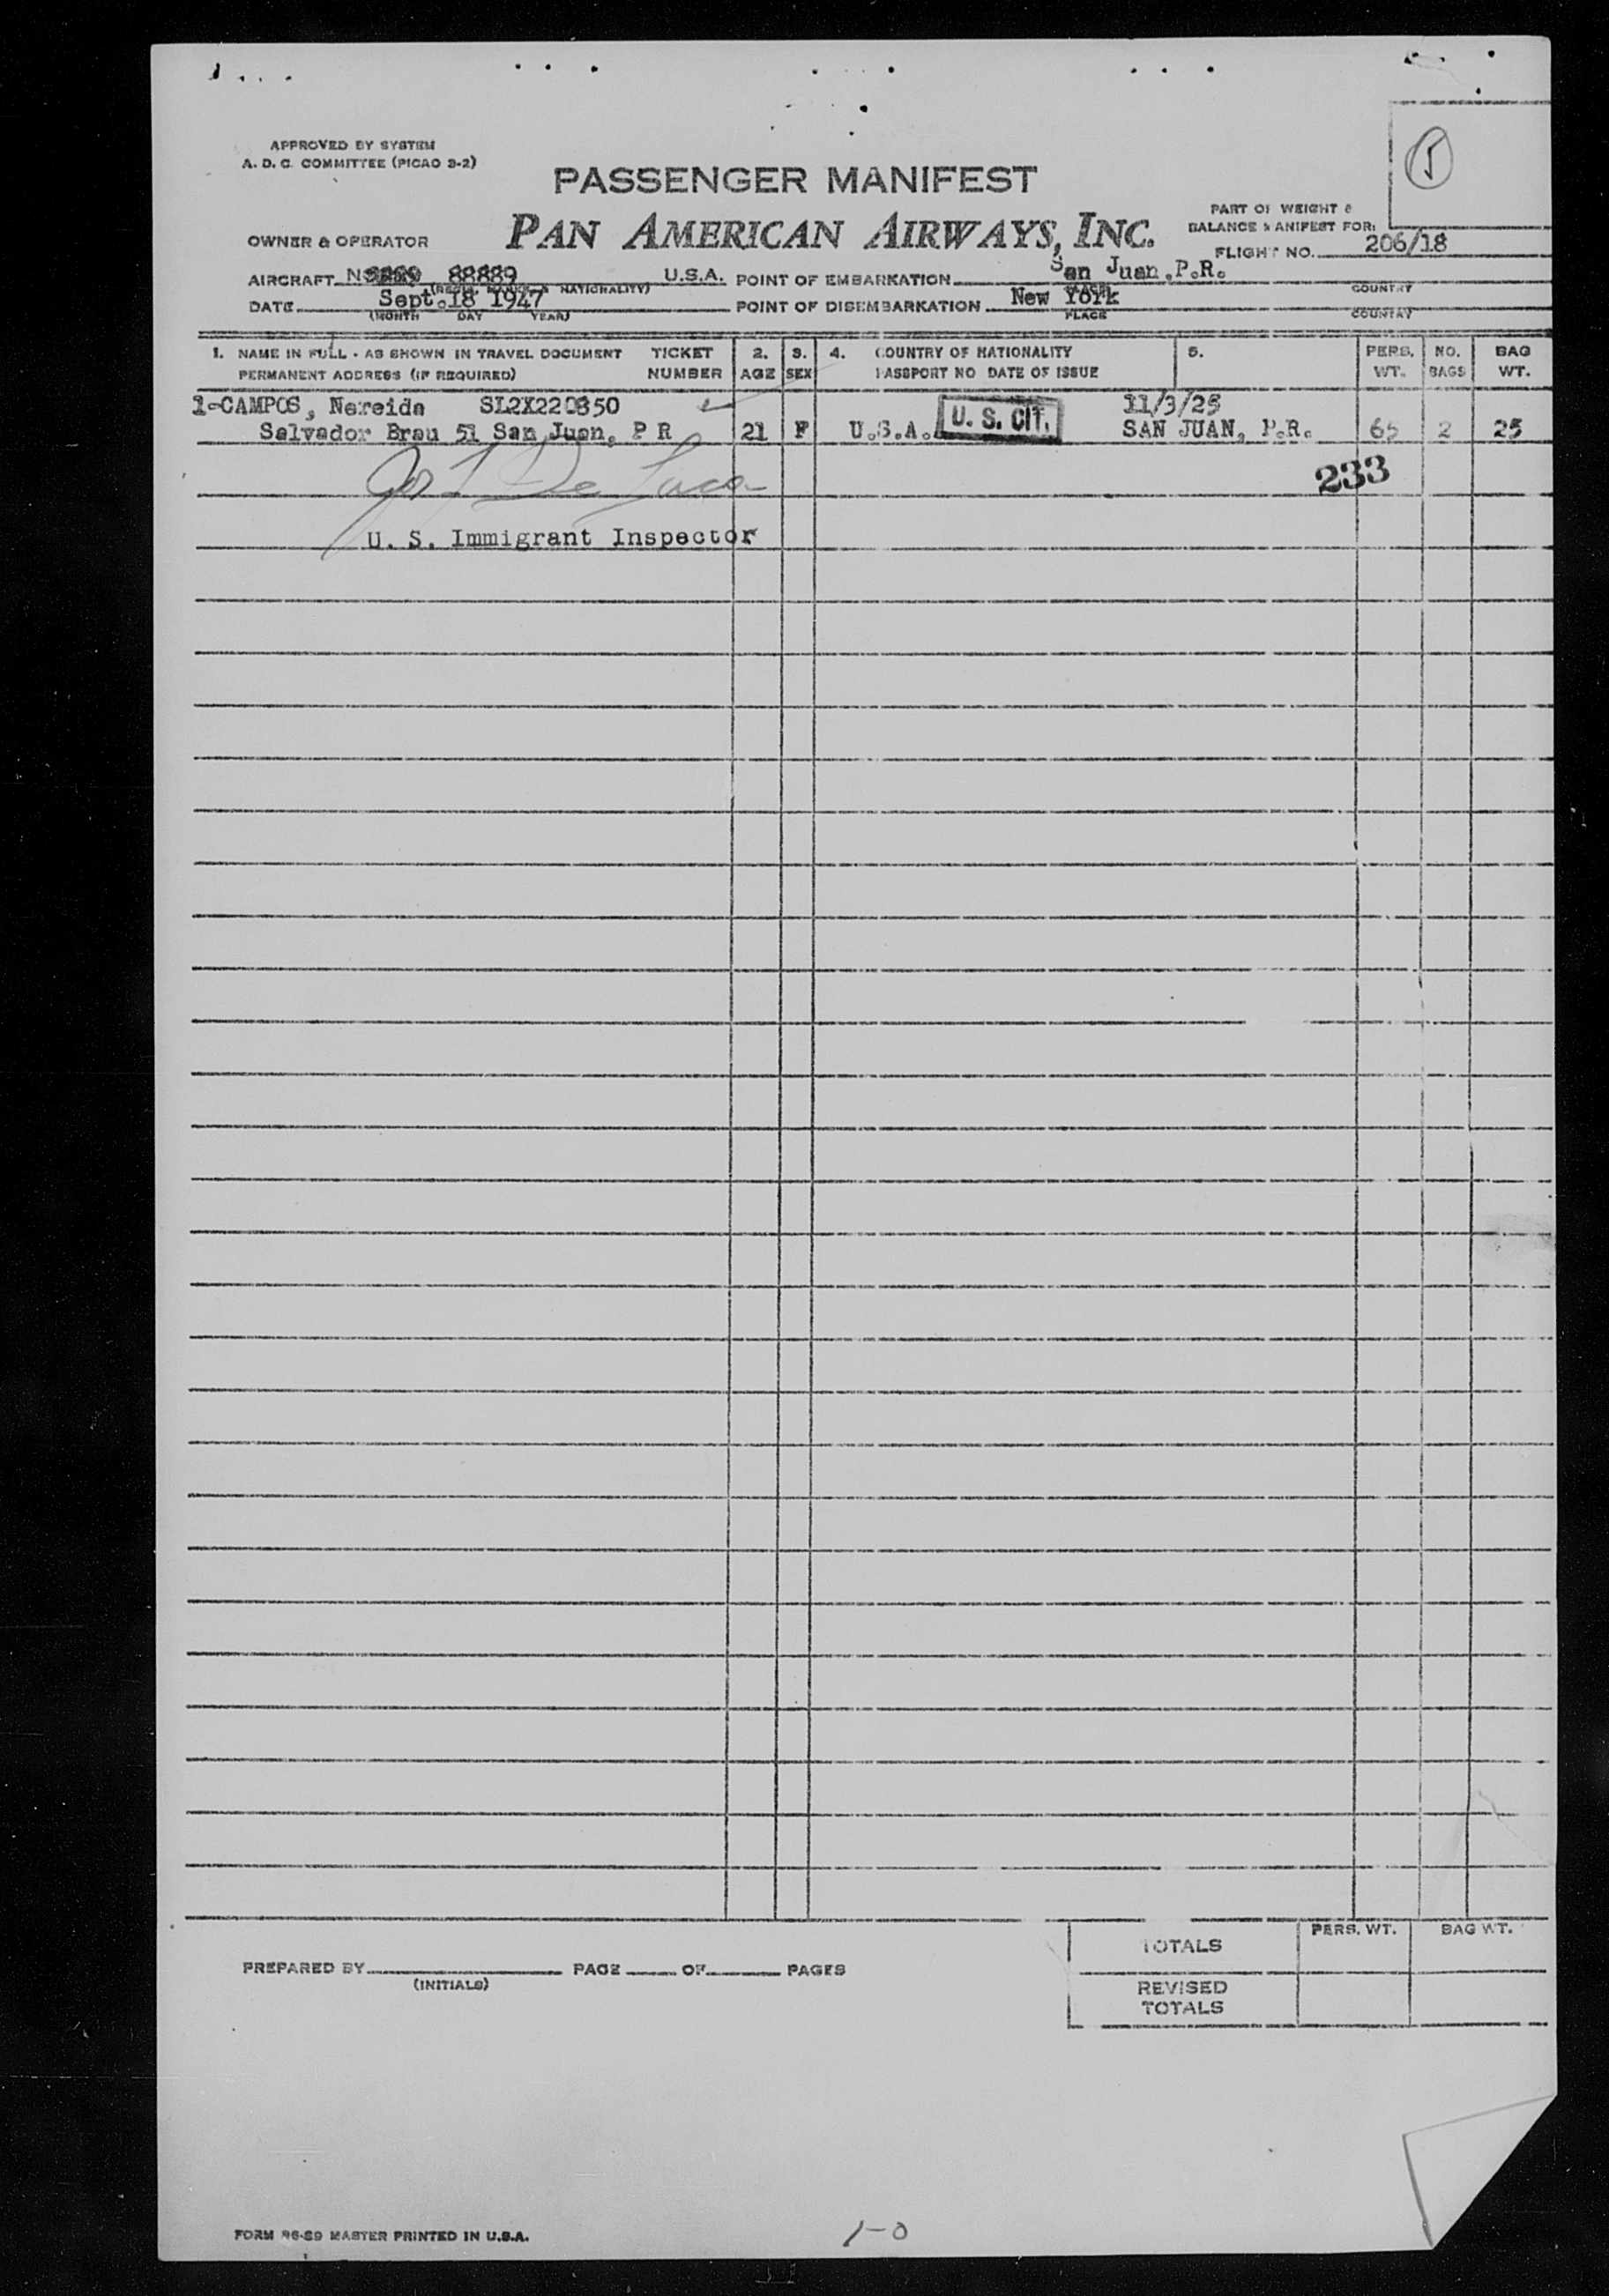 APPROVED BY SYSTEM
A. D. C. COMMITTEE (PICAO 3-2)
5
PASSENGER MANIFEST
PAN AMERICAN AIRWAYS, INC.
PART OF WEIGHT &
BALANCE MANIFEST FOR:
OWNER & OPERATOR
FLIGHT NO. 206/18
AIRCRAFT 88889 U.S.A. POINT OF EMBARKATION San Juan, P.R.
(REGIS. MARKS & NATIONALITY) PLACE COUNTRY
DATE Sept. 18 1947 POINT OF DISEMBARKATION New York
(MONTH DAY YEAR) PLACE COUNTRY
1. NAME IN FULL - AS SHOWN IN TRAVEL DOCUMENT TICKET 2. 3. 4. COUNTRY OF NATIONALITY 5. PERS. NO. BAG
PERMANENT ADDRESS (IF REQUIRED) NUMBER AGE SEX PASSPORT NO DATE OF ISSUE WT. BAGS WT.
1-CAMPOS, Nereida SL2X220850 11/3/25
Salvador Brau 51 San Juan, P R 21 F U.S.A. U. S. CIT. SAN JUAN, P.R. 65 2 25
233
U. S. Immigrant Inspector
TOTALS PERS. WT. BAG WT.
PREPARED BY PAGE OF PAGES
(INITIALS)
REVISED
TOTALS
FORM MASTER PRINTED IN U.S.A.
1-0